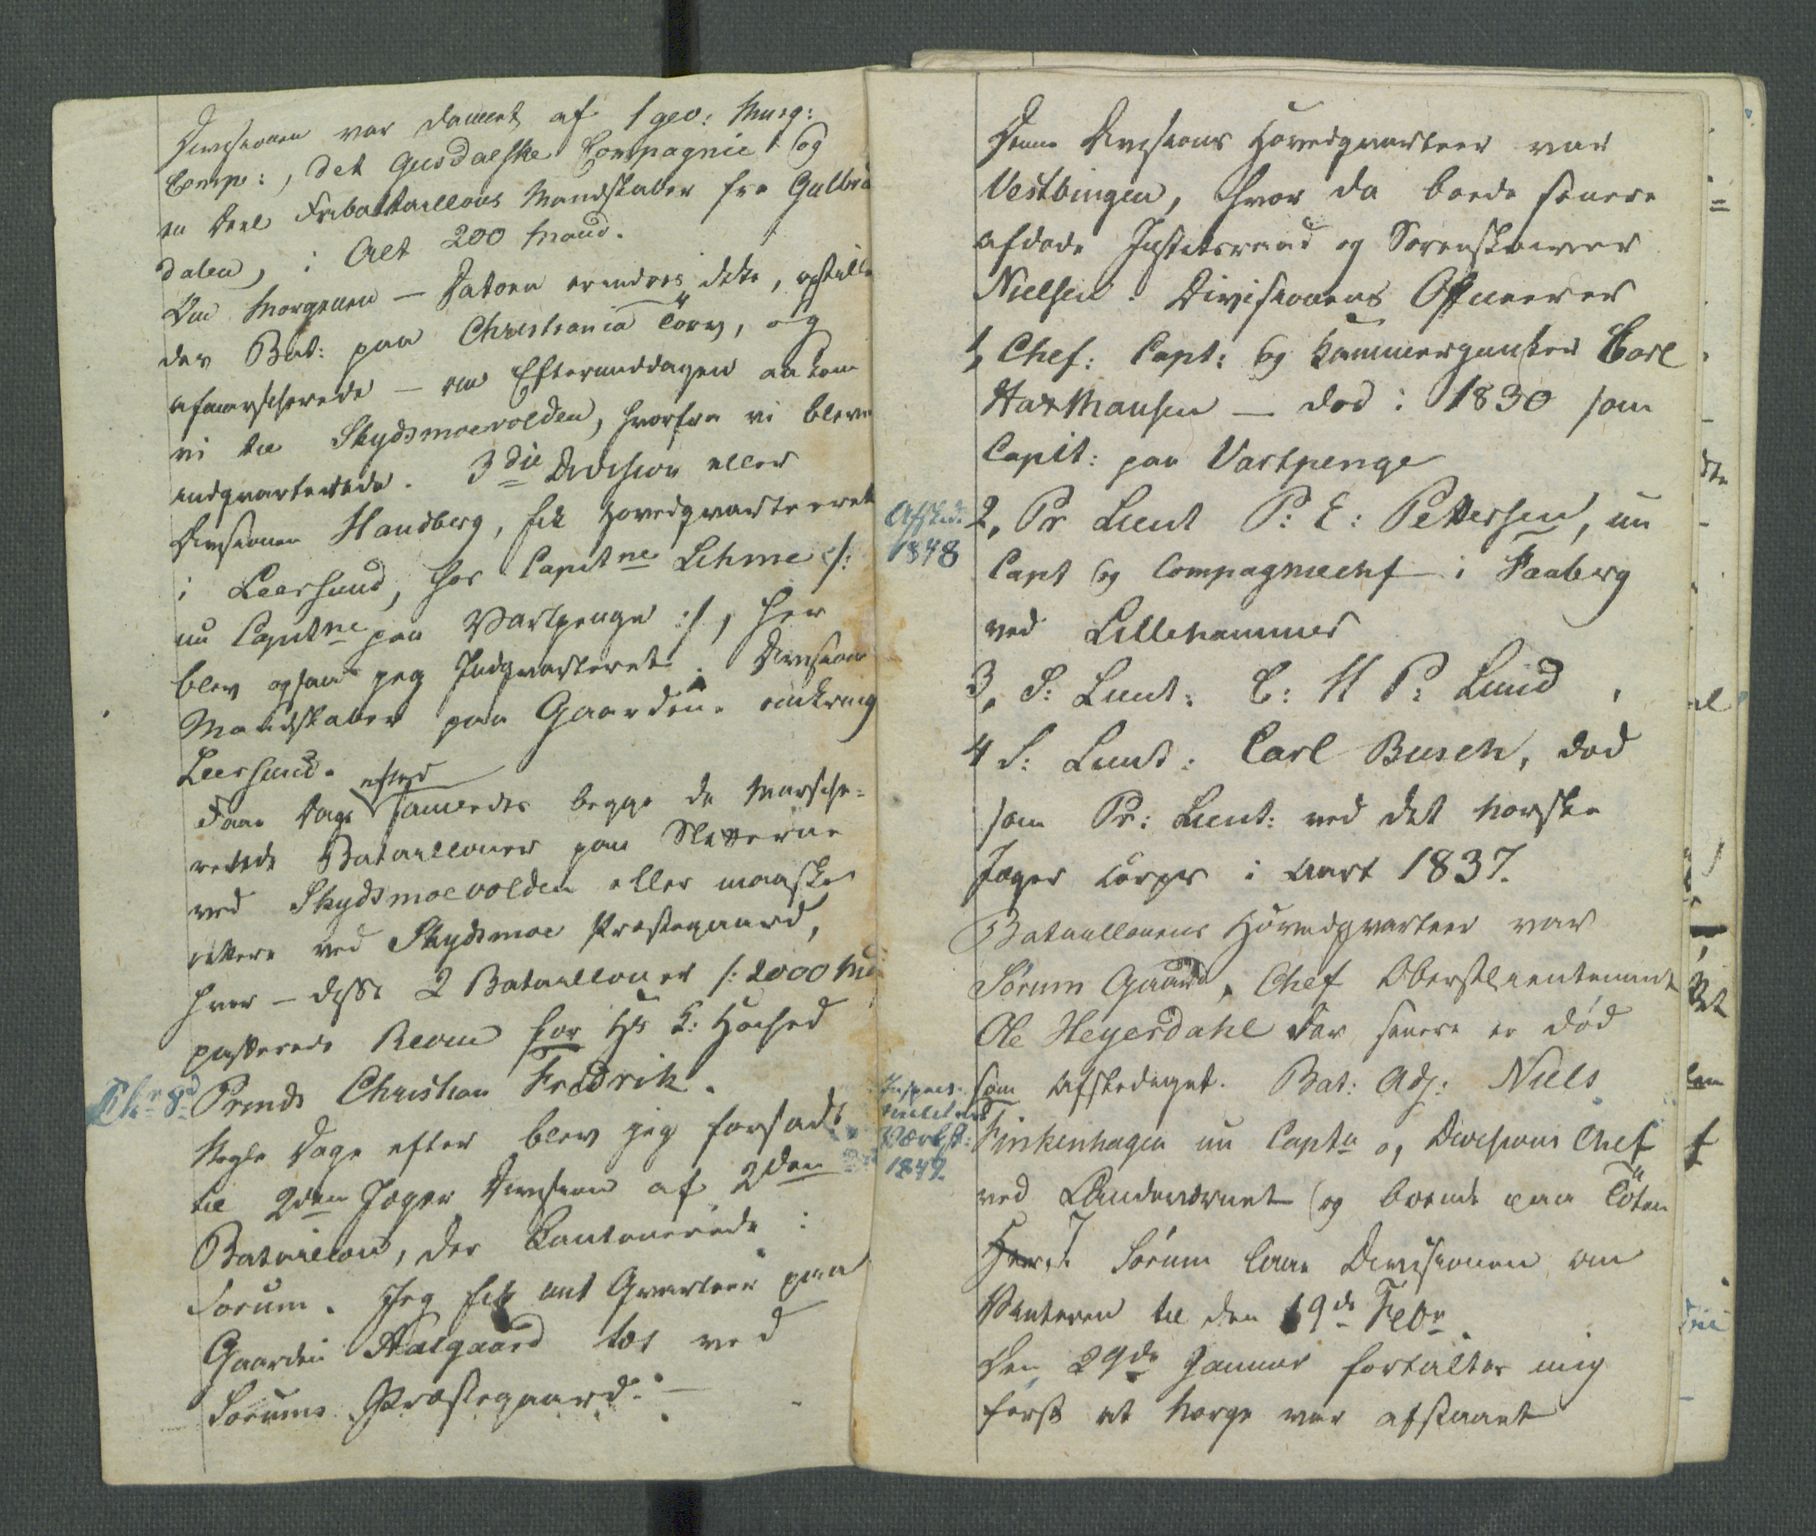 Divisionen var dannet af 1 gev: Musq:
Comp:, det Gusdalske Compagnie og
en Deel Fribataillons Mandskaber fra Gulbra
dalen, i Alt 200 Mand.
Om Morgenen — Datoen erindres ikke, opstille
des Bat: paa Christiania Torv, og
afmarscherede — om Eftermiddagen ankom
vi til Skydsmoevolden, hvorfra vi bleve
indqvarterede. 3die Division eller
Divisionen Handberg, fik Hovedqvarteret
i Leersund, hos Capitne Lehme /:
nu Capitne paa Vartpenge :/, her
blev ogsaa jeg Indqvarteret. Divisions
Mandskaber paa Gaardene omkring
Leersund.
Faae Dage efter samledes begge de marsche-
rede Batailloner paa Sletterne
ved Skydsmoevolden eller maaske
rettere ved Skydsmoe Præstegaard,
hvor — disse 2 Batailloner /: 2000 Md
passerede Revue for Hs K: Høihed
Chr 8d Prinds Christian Fredrik.
Nogle Dage efter blev jeg forsadt
til 2den Jæger Division af 2den
Bataillon, der Cantonerede i
Sørum. Jeg fik mit Qvarteer paa
Gaarden Aalgaard tæt ved
Sørums Præstegaard. —
Denne Divisions Hovedqvarteer var
Vestbingen, hvor da boede senere
afdøde Justitsraad og Sorenskriver
Nielsen. Divisionens Officerer
1, Chef: Capt: og Kammerjunker Carl
Haxthausen — død i 1830 som
Capit: paa Vartpenge
Afskd: 1848
2, Pr Lieut P: E: Pettersen, nu
Capt og Compagniechef i Faaberg
ved Lillehammer
3, S: Lieut: C: H P: Lund,
4 S: Lieut: Carl Busch, død
som Pr: Lieut: ved det norske
Jæger Corps i Aaret 1837.
Bataillonens Hovedqvarteer var
Sørum Gaard, Chef Oberstlieutenant
Ole Heyerdahl der senere er død
som afskediget. Bat: Adj: Niels
Finkenhagen nu Captn og Divisions Chef
ved Landeværnet og boende paa Toten
1849.
I Sørum laae Divisionen om
Vinteren til den 19de Febr.
Den 29de Januar fortaltes mig
først at Norge var afstaaet